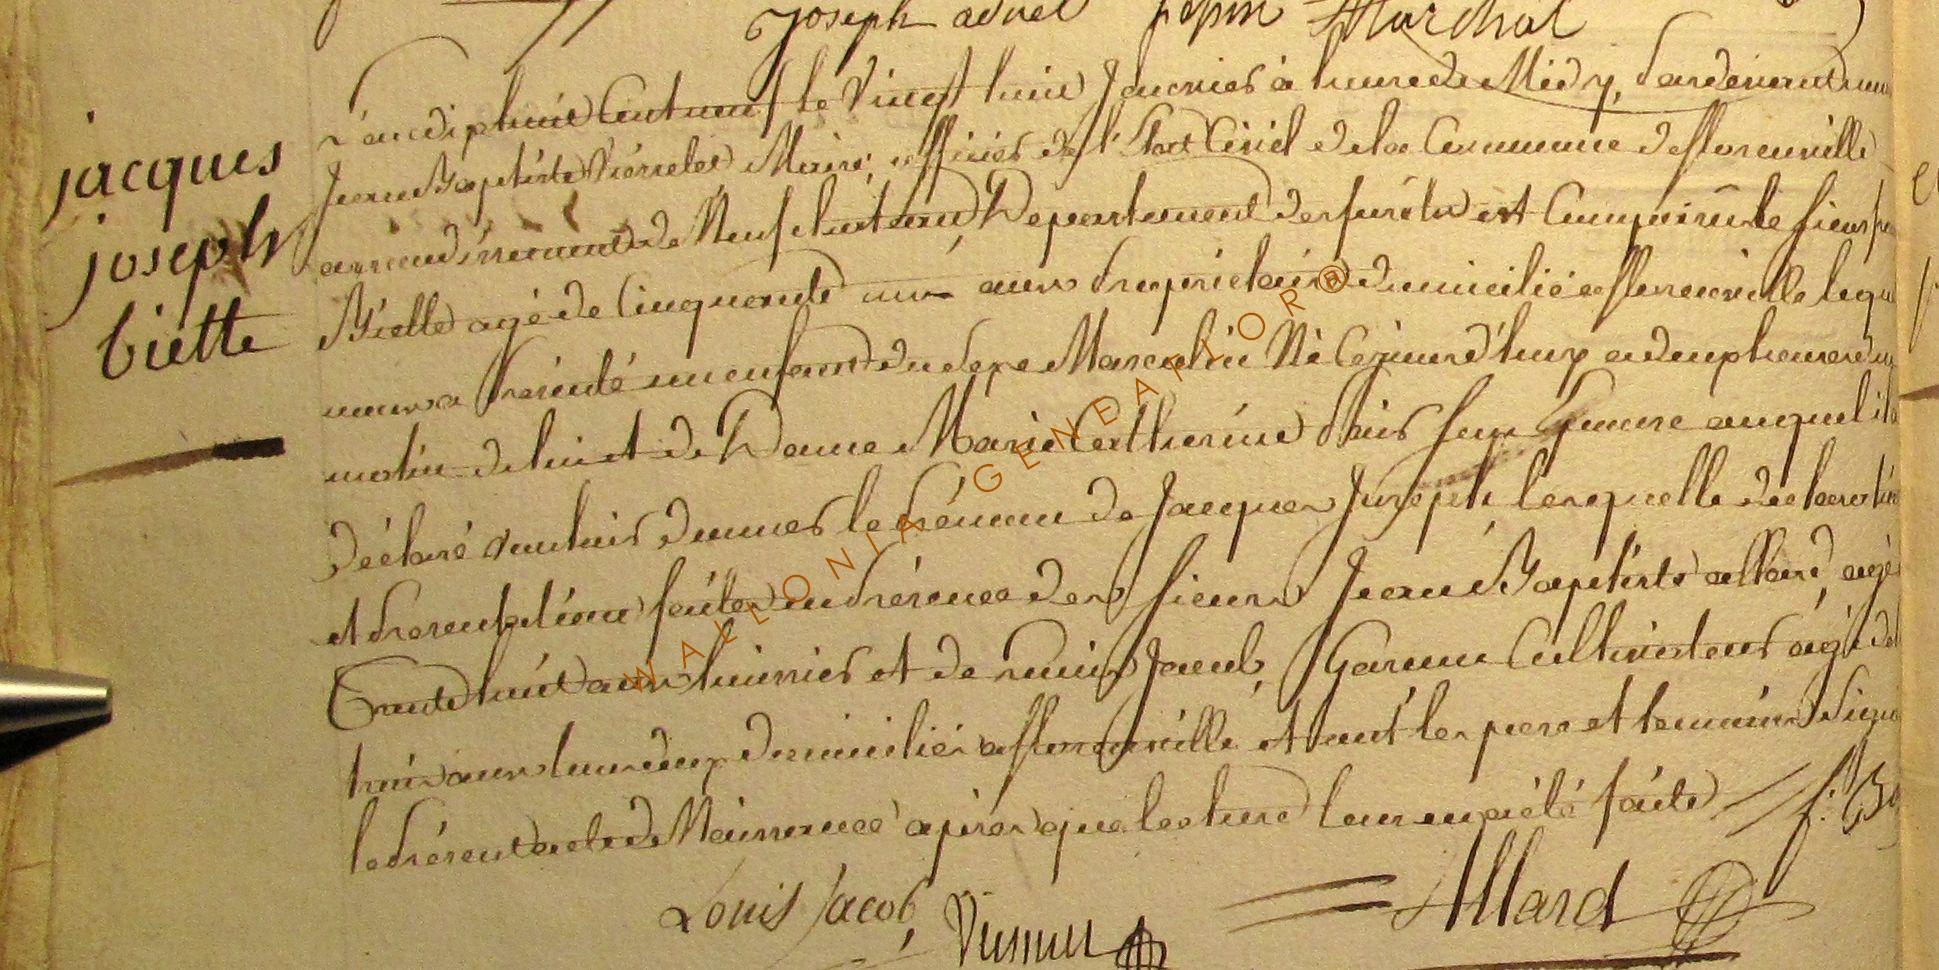 Joseph advel pepin Marchal
jacques
joseph
biette
L'an dix huit Cent neuf le Vingt huit Janvier à heure de Midy, Pardevant nous
Jean Baptiste Maire, officier de l'Etat Civil de la Commune de florenville
arrondissement de Neufchateau Departement des forêts est Comparu le sieur
Biette agé de Cinquante un ans Proprietaire domicilié a florenville lequel
nous a Presenté un enfant du sexe Masculin Né Cejourd'huy a deux heures du
matin de lui et de Dame Marie Catherine son Epouse auquel il a
déclaré vouloir donner le Prénom de Jacques Joseph lesquelle declaration
et Presentation faites en Presence des sieurs Jean Baptiste allard, agé
Trente huit ans huissier et de Louis Jacob, Garcon Cultivateur agé de
trois ans tous deux domiciliés a florenville et ont les pere et temoins Signé
le Présent acte de Naissance après que lecture leur en a été faite
Louis Jacob,
Allard
WALLONIA GENDARLOR®